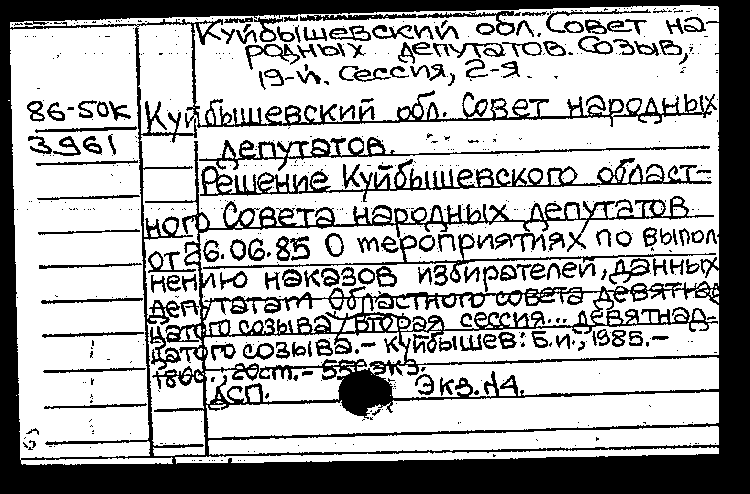 Куйбышевский обл. Совет на-
родных депутатов. Созыв,
19-й. Сессия, 2-я.
86-50к Куйбышевский обл. Совет народных
3961 депутатов.
Решение Куйбышевского област-
ного Совета народных депутатов
от 26.06.85 О мероприятиях по выпол-
нению наказов избирателей, данных
депутатам Областного совета девятнад
цатого созыва / вторая сессия... девятнад-
цатого созыва. - Куйбышев: Б.и., 1985. -
186с.; 20ст. - 550экз.
ДСП. Экз. №4.